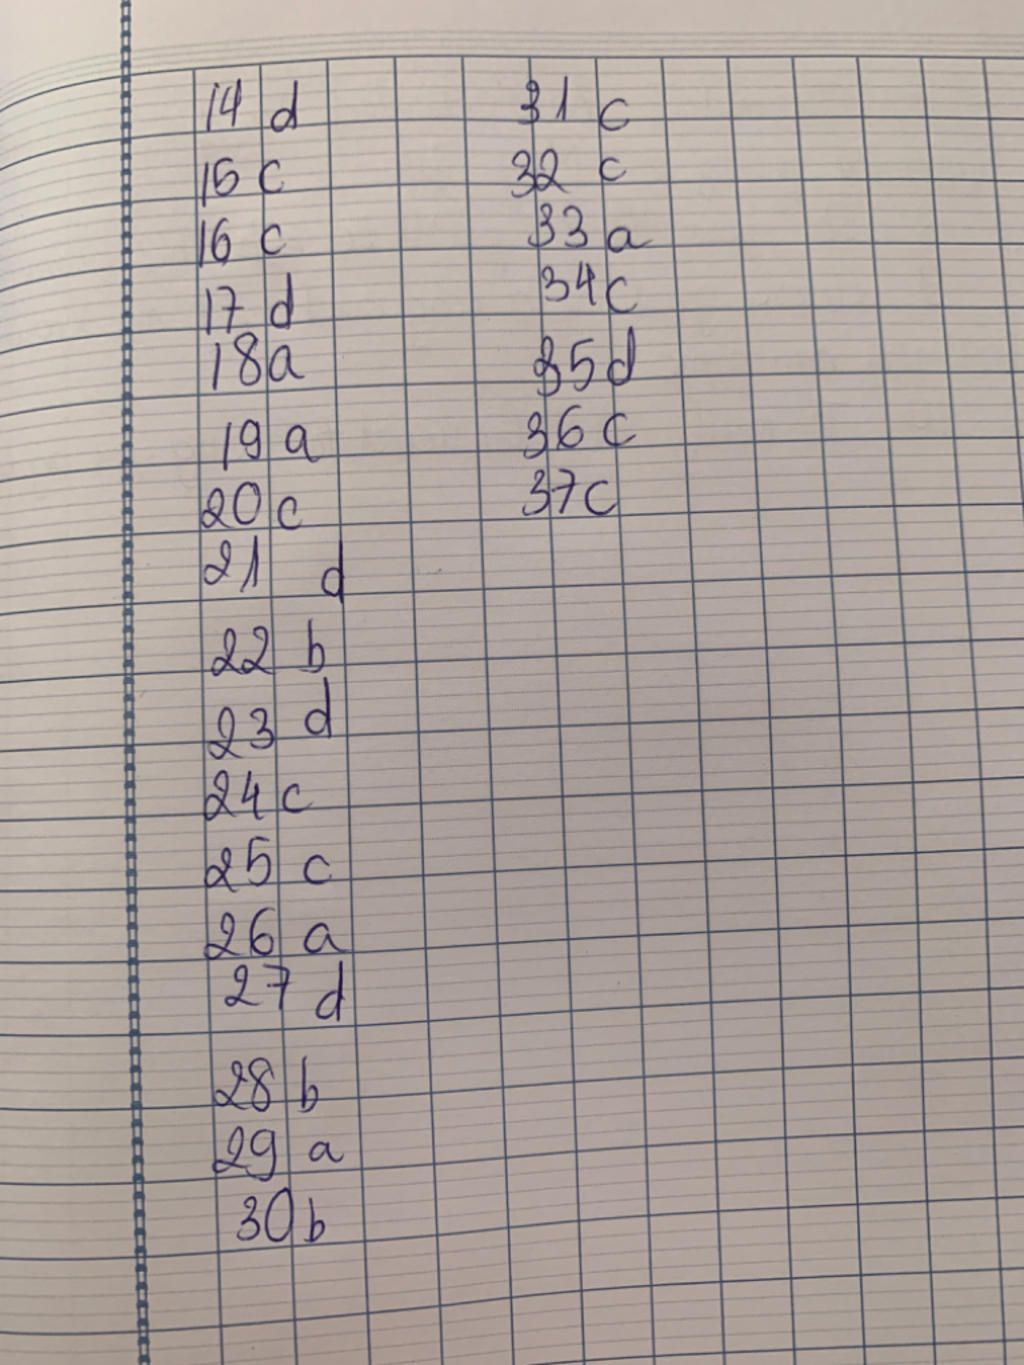 14 d
15 c
16 c
17 d
18 a
19 a
20 c
21 d
22 b
23 d
24 c
25 c
26 a
27 d
28 b
29 a
30 b
31 c
32 c
33 a
34 c
35 d
36 c
37 c